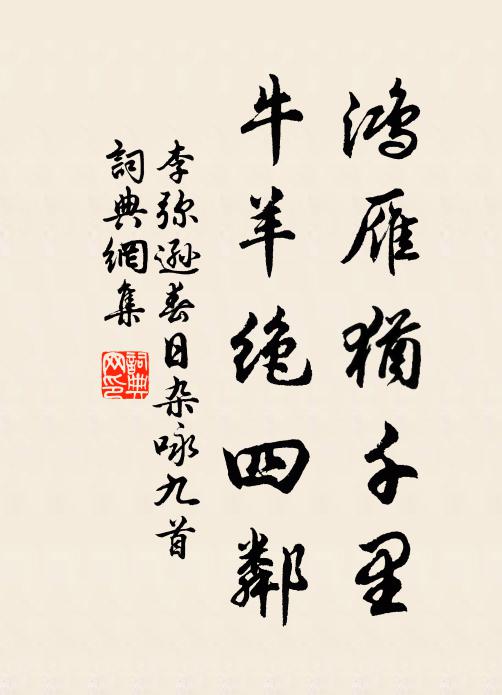 鸿雁犹千里
牛羊绝四鄰
李弥遜春日杂咏九首
詞典網集
詞典網印